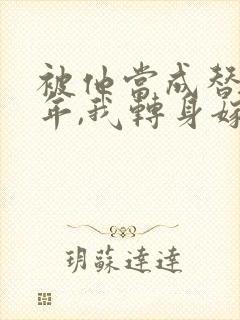 被他當成替
年,我轉身嫁
玥蘇達達